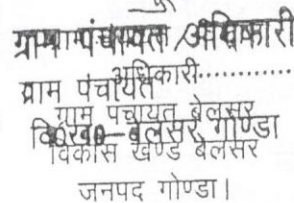 ग्राम पंचायत अधिकारी
अधिकारी............
ग्राम पंचायत
ग्राम पंचायत बेलसर
वि0ख0-बेलसर, गोण्डा
विकास खण्ड बेलसर
जनपद गोण्डा।